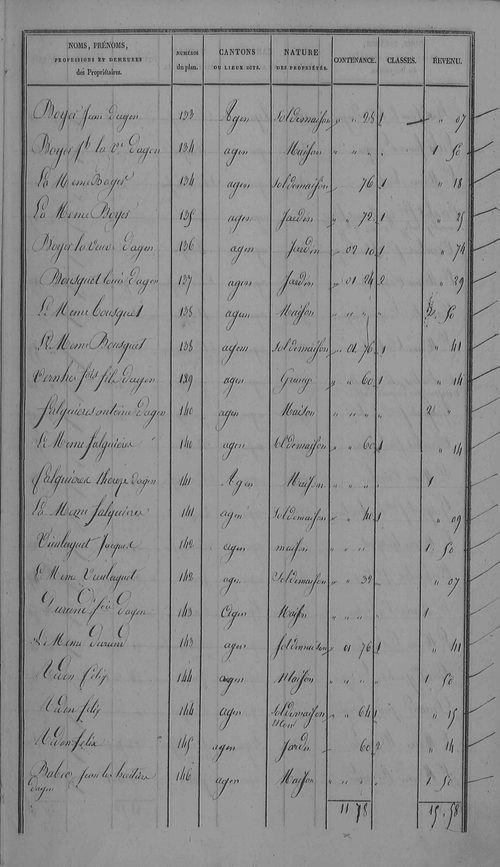 NOMS, PRÉNOMS, PROFESSIONS ET DEMEURES des Propriétaires. NUMÉROS du plan. CANTONS OU LIEUX DITS. NATURE DES PROPRIÉTÉS. CONTENANCE. CLASSES. REVENU.
Boyer Jean d'agen 133 Agen Sol de maison " " 28 1 " 07
Boyer la Ve d'agen 134 agen Maison " " " 1 50
La Meme Boyer 134 agen Sol de maison " 76 1 " 18
La Meme Boyer 135 agen Jardin " " 72 1 " 25
Boyer la veuve d'agen 136 agen Jardin " 02 10 1 " 74
Bousquet louis d'agen 137 agen Jardin " 01 24 2 " 29
Le Meme bousquet 138 agen Maison " " " 50
Le Meme Bousquet 138 agen Sol de maison " 01 76 1 " 41
fois fils d'agen 139 agen Grange " " 60 1 " 14
falguieres antoine d'agen 140 agen Maison " " " " 2 "
Le Meme falguieres 140 agen Sol de maison " " 60 1 " 14
falguieres d'agen 141 Agen Maison " " " " 1
La Meme falguieres 141 agen Sol de maison " " 40 1 " 09
Jacques 142 agen maison " " " 1 50
Le Meme 142 agen Sol de maison " " 32 " 07
Durand fois d'agen 143 Agen Maison " " " 1
Le Meme durand 143 agen Sol de maison " 01 76 1 " 41
felix 144 agen Maison " " " " 1 50
felix 144 agen Sol de maison " " 64 1 " 15
felix 145 agen Jardin 60 2 " 14
Jean les heritiers d'agen 146 agen Maison " " " " 50
11 78 15 58